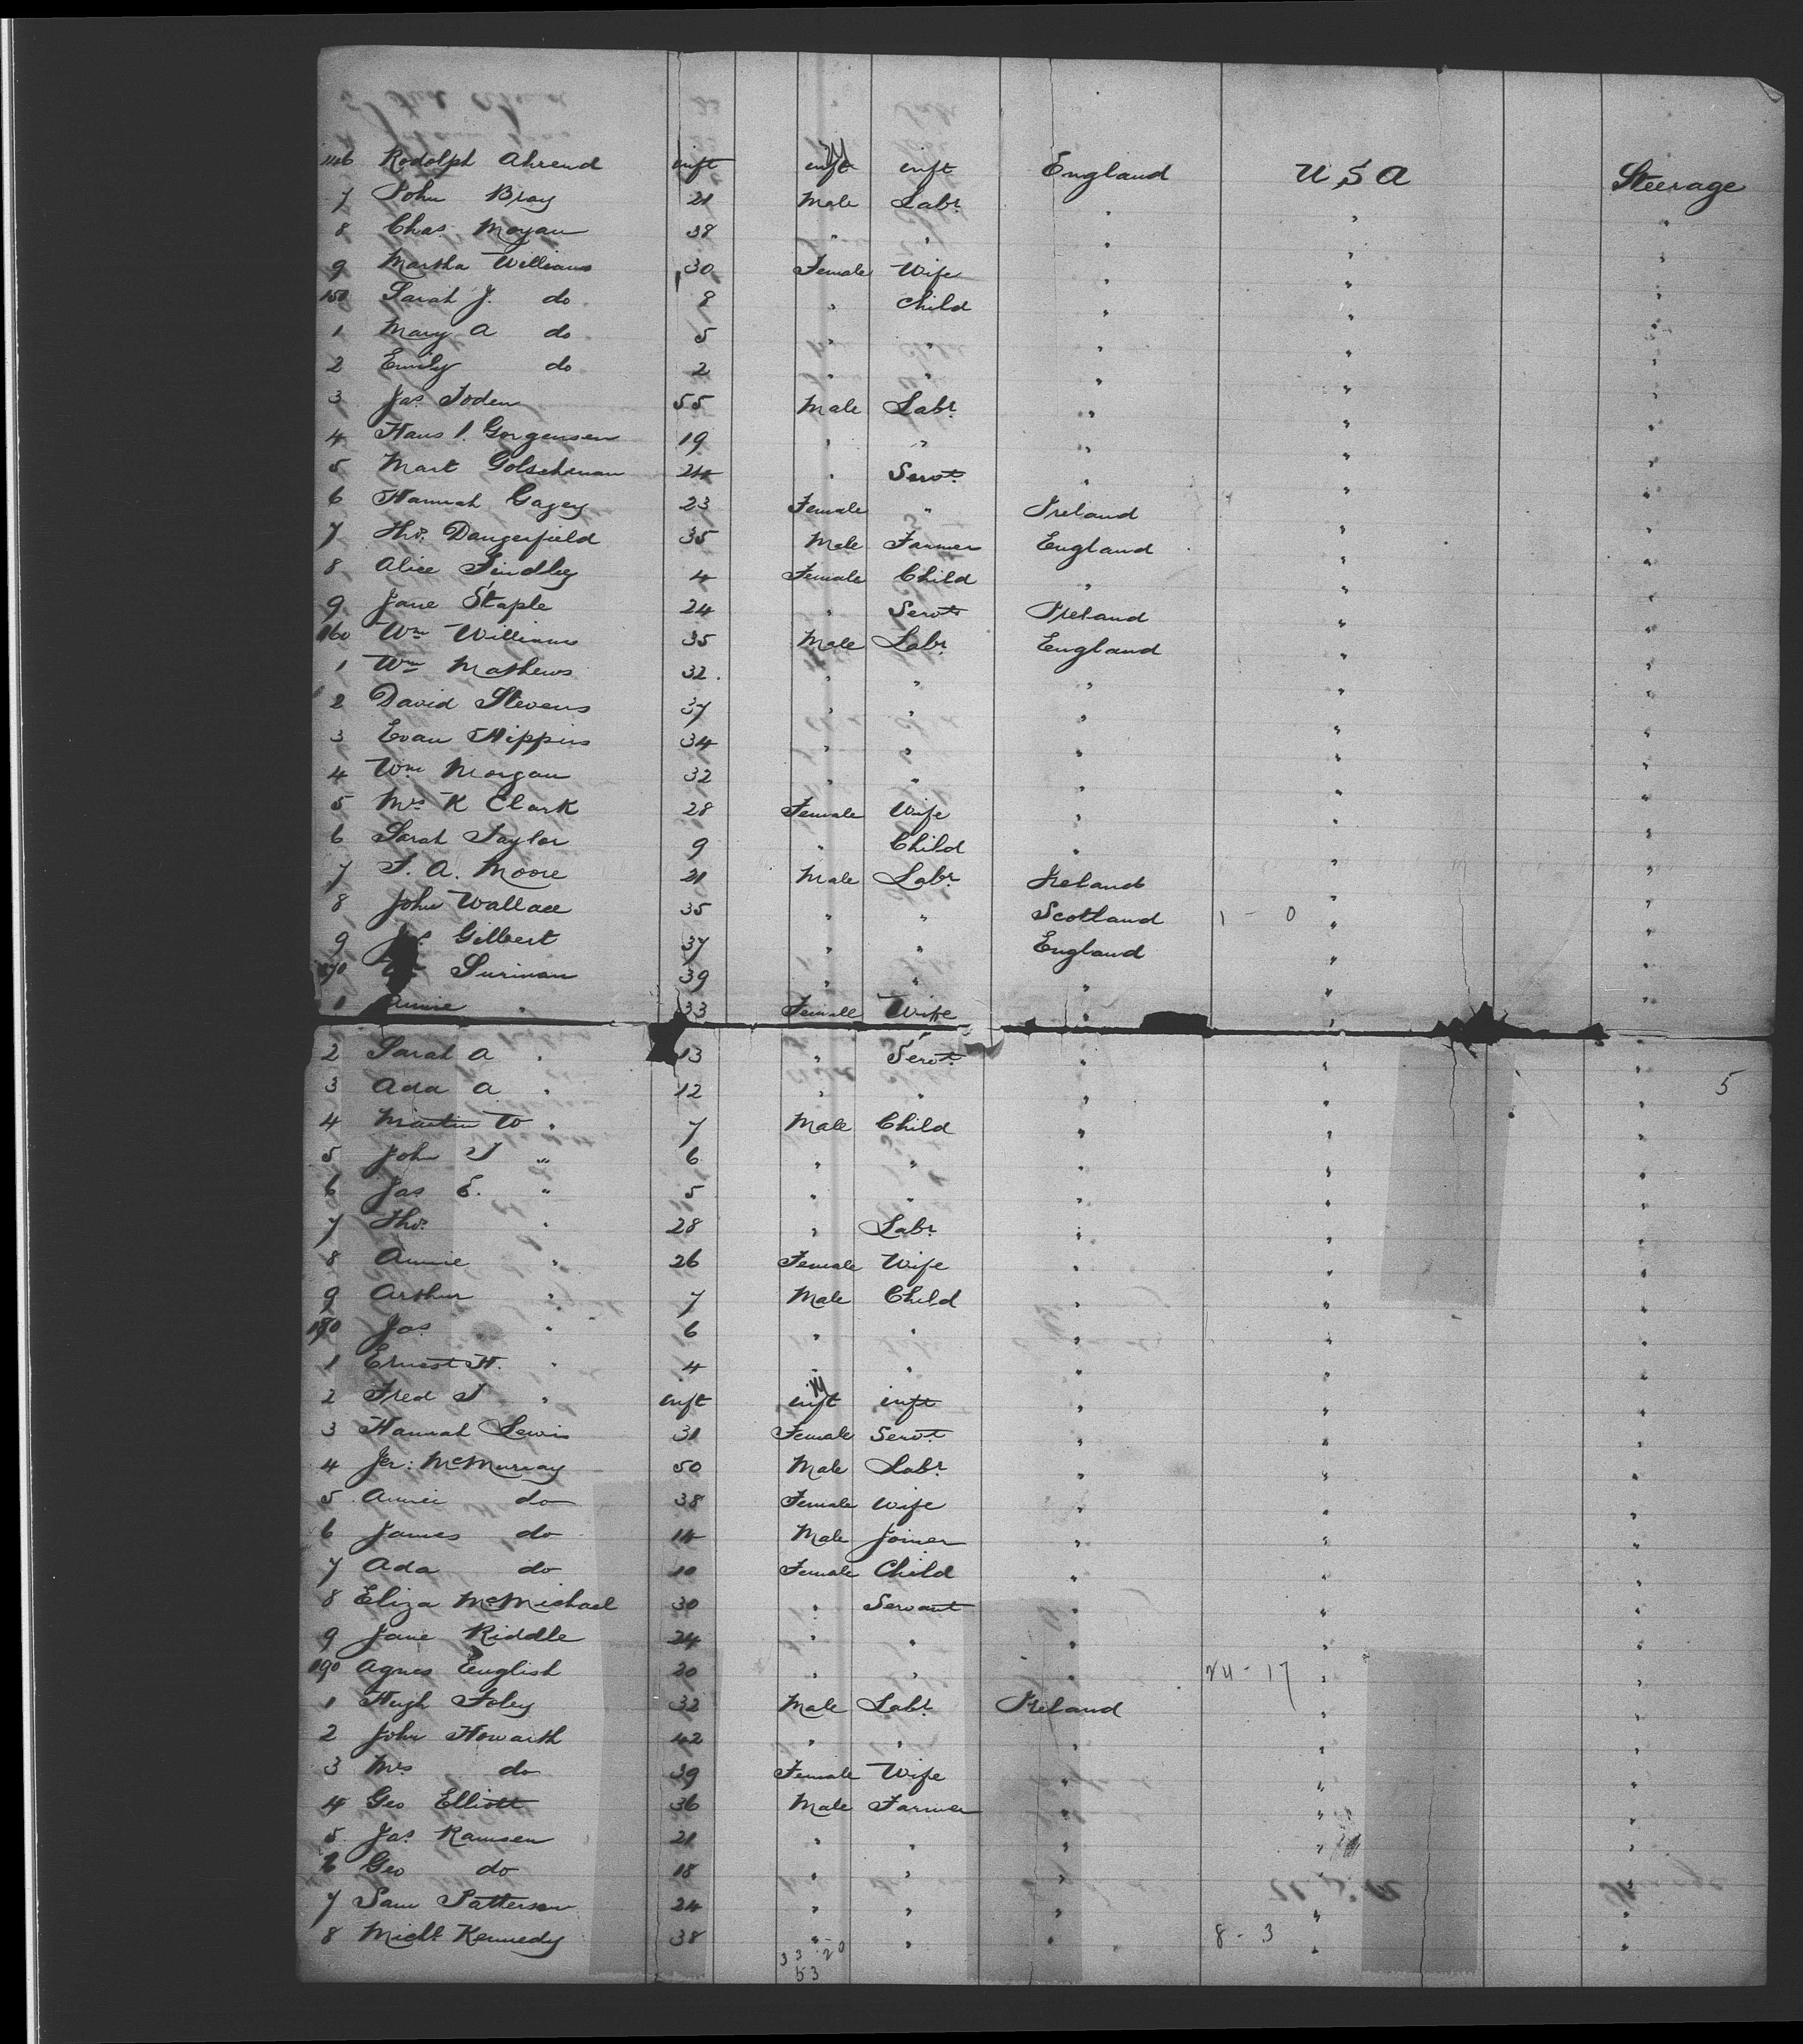 146 Rodolph Ahrend inft inft M inft England USA Steerage
7 John Bray 21 Male Labr " " "
8 Chas Moyan 38 " " " " "
9 Martha Williams 30 Female Wife " " "
150 Sarah J. do 8 " Child " " "
1 Mary A do 5 " " " " "
2 Emily do 2 " " " " "
3 Jas Toden 55 Male Labr " " "
4 Hans P. Gorgensen 19 " " " " "
5 Mart Golschman 24 " Servt " " "
6 Hannah Gagey 23 Female " Ireland " "
7 Thos. Dangerfield 35 Male Farmer England " "
8 Alice Findley 4 Female Child " " "
9 Jane Staple 24 " Servt Ireland " "
160 Wm Williams 35 Male Labr England " "
1 Wm Mathews 32. " " " " "
2 David Stevens 37 " " " " "
3 Evan Hippins 34 " " " " "
4 Wm Morgan 32 " " " " "
5 Mrs K Clark 28 Female Wife " " "
6 Sarah Taylor 9 " Child " " "
7 T. A. Moore 21 Male Labr Ireland " "
8 John Wallace 35 " " Scotland 1 - 0 " "
9 Gilbert 37 " " England " "
170 Surman 39 " " " " "
1 Annie " 33 Female Wife " " "
2 Sarah A " 13 " Servt " " "
3 Ada A " 12 " " " " " 5
4 Martin W " 7 Male Child " " "
5 John T " 6 " " " " "
6 Jas E. " 5 " " " " "
7 Thos. " 28 " Labr " " "
8 Annie " 26 Female Wife " " "
9 Arthur " 7 Male Child " " "
180 Jas " 6 " " " " "
1 Ernest H. " 4 " " " " "
2 Fred T " inft inft M inft " " "
3 Hannah Lewis 31 Female Servt " " "
4 Jer: McMurray 50 Male Labr " " "
5 Annie do 38 Female Wife " " "
6 James do 14 Male Joiner " " "
7 Ada do 10 Female Child " " "
8 Eliza McMichael 30 " Servant " " "
9 Jane Riddle 24 " " " " "
190 Agnes English 20 " " " 24 - 17 " "
1 Hugh Foley 32 Male Labr Ireland " "
2 John Howarth 42 " " " " "
3 Mrs do 39 Female Wife " " "
4 Geo Elliott 36 Male Farmer " " "
5 Jas Ramsen 21 " " " " "
6 Geo do 18 " " " " "
7 Sam Patterson 24 " " " " "
8 Michl Kennedy 38 " " " 8 - 3 " "
33 - 20
53